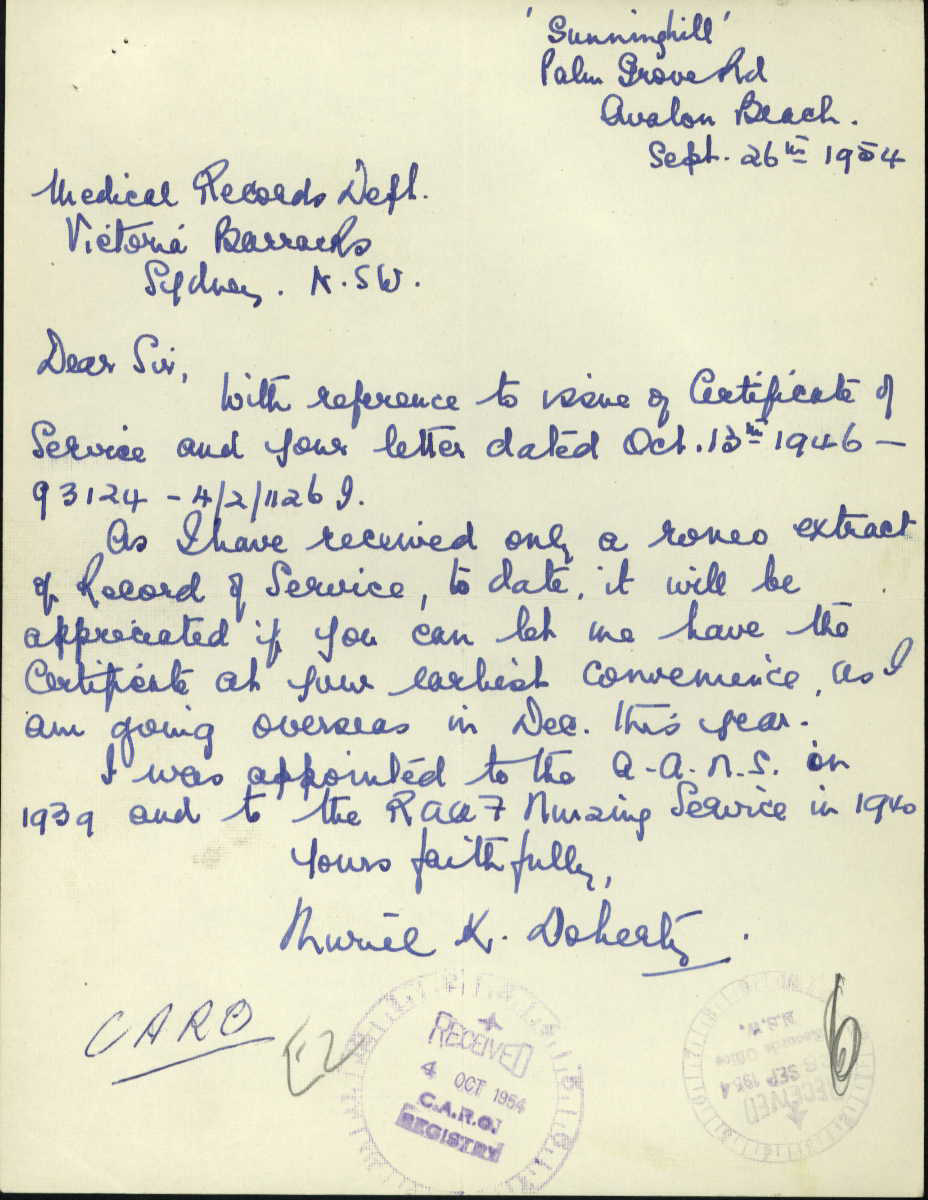 'Sunninghill'
Palm Grove Rd
Avalon Beach.
Sept. 26th 1954
Medical Records Dept.
Victoria Barracks
Sydney. N.SW.
Dear Sir,
With reference to issue of Certificate of
Service and your letter dated Oct. 13th 1946 –
93124 – 4/2/1126 I.
As I have received only a roneo extract
of Record of Service, to date, it will be
appreciated if you can let me have the
Certificate at your earliest convenience, as I
am going overseas in Dec. this year.
I was appointed to the A.A.N.S. in
1939 and to the RAAF Nursing Service in 1940
Yours faithfully,
Muriel K. Doherty.
CARO
RECEIVED
4 OCT 1954
C.A.R.O.
REGISTRY
6
N.S.W.
Records Office
SEP 1954
RECEIVED